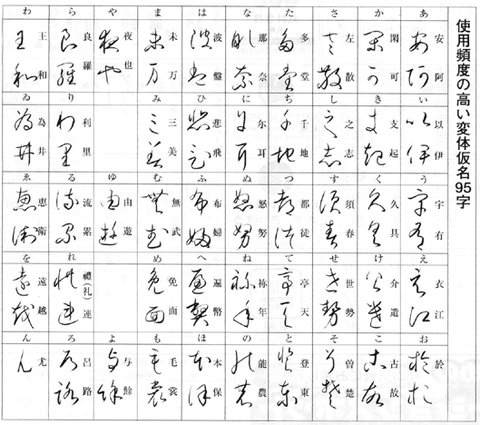 使用頻度の高い変体仮名95字
あ
安 阿
か
閑 可
さ
左 散
た
多 堂
な
那 奈
は
波 盤
ま
未 万
や
夜 也
ら
良 羅
わ
王 和
い
以 伊
き
支 起
し
之 志
ち
千 地
に
尓 耳
ひ
悲 飛
み
三 美
り
利 里
ゐ
為 井
う
宇 有
く
久 具
す
須 春
つ
都 徒
ぬ
怒 努
ふ
布 婦
む
無 武
ゆ
由 遊
る
流 累
ゑ
恵 衛
え
衣 江
け
介 遣
せ
世 勢
て
亭 天
ね
祢 年
へ
遍 幣
め
免 面
れ
禮(礼) 連
を
遠 越
お
於
こ
古 故
そ
曽 楚
と
登 東
の
能 農
ほ
本 保
も
毛 裳
よ
与 餘
ろ
呂 路
ん
尤